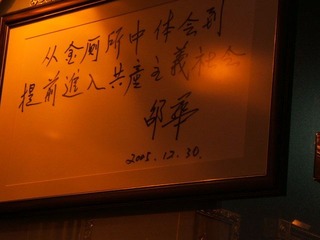 从金厕所中体会到
提前進入共產主義社会
邵華
2005.12.30.